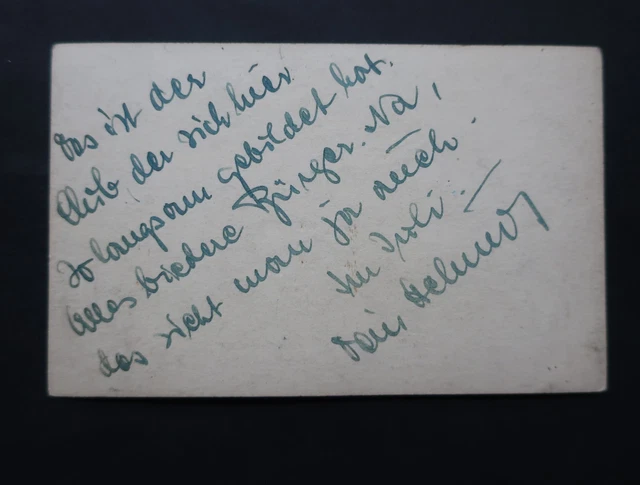 Das ist der
Club der sich hier
so langsam gebildet hat.
Alles biedere Bürger. Na,
das sieht man ja auch.
Im Juli.
Dein Helmut